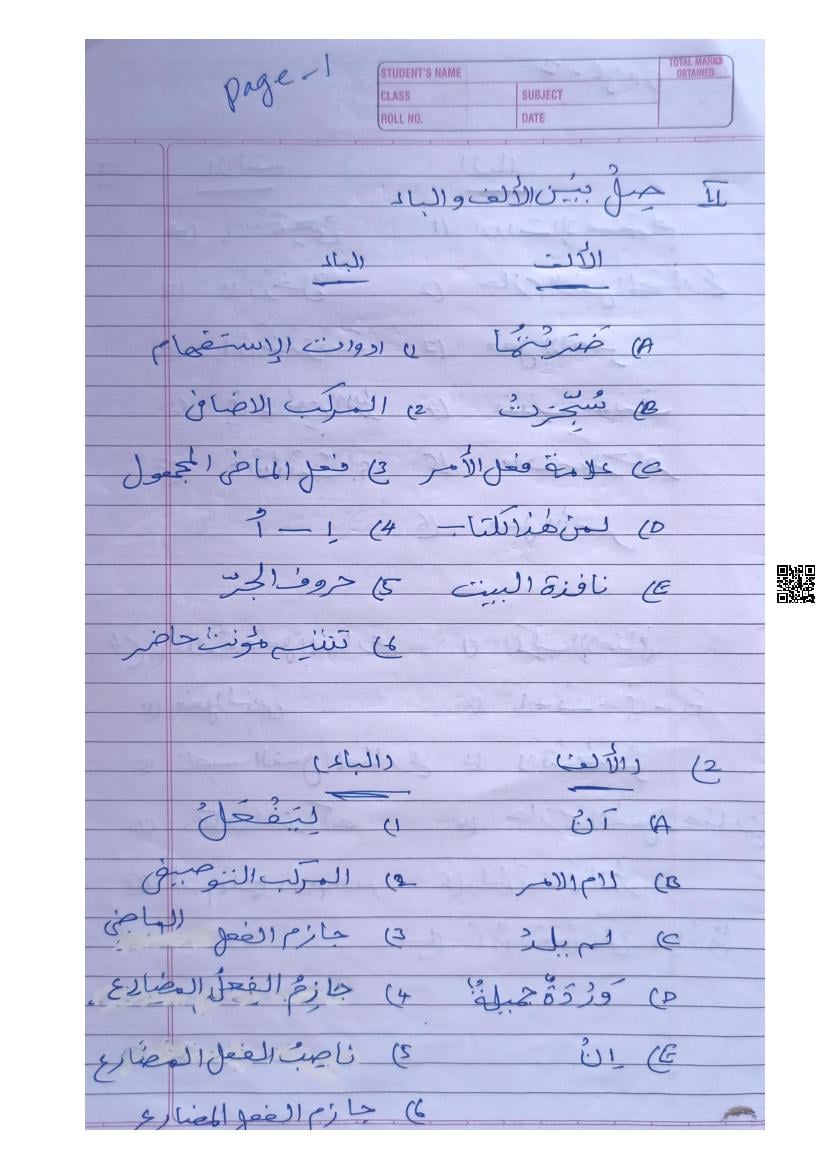 page-1
STUDENT'S NAME
TOTAL MARKS OBTAINED
CLASS
SUBJECT
ROLL NO.
DATE
II صِلْ بَيْنَ الألف و الباء
الألف الباء
A) ضَرَبْتُهَا 1) ادوات الإستفهام
B) سُجِّرَتْ 2) المركب الاضافى
C) علامة فعل الأمر 3) فعل الماضى المجهول
D) لمن هٰذا لكتاب 4) اِ — اُ
E) نافزة البيت 5) حروف الجرّ
6) تثنيه مؤنث حاضر
2) (الألف) (الباء)
A) آنْ 1) لِيَفْعَلْ
B) لام الامر 2) المركب التوصيفى
C) لم يلدْ 3) جازم الفعل الماضى
D) وَرْدَةٌ جميلةٌ 4) جازمُ الفِعلُ المضارع
E) اِنْ 5) ناصبُ الفعل المضارع
6) جازم الفعل المضارع